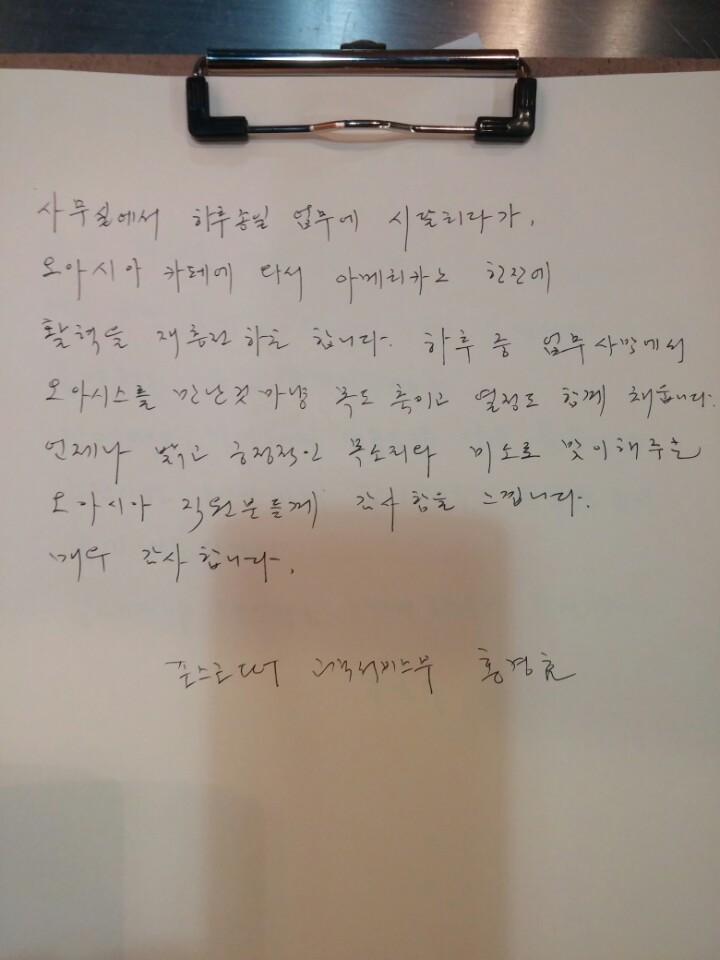 사무실에서 하루종일 업무에 시달리다가,
오아시아 카페에 와서 아메리카노 한잔에
활력을 재충전 하곤 합니다. 하루 중 업무사막에서
오아시스를 만난것 마냥 목도 축이고 열정도 함께 채웁니다.
언제나 밝고 긍정적인 목소리와 미소로 맞이해주는
오아시아 직원분들께 감사함을 느낍니다.
매우 감사합니다.
고객서비스부 홍경